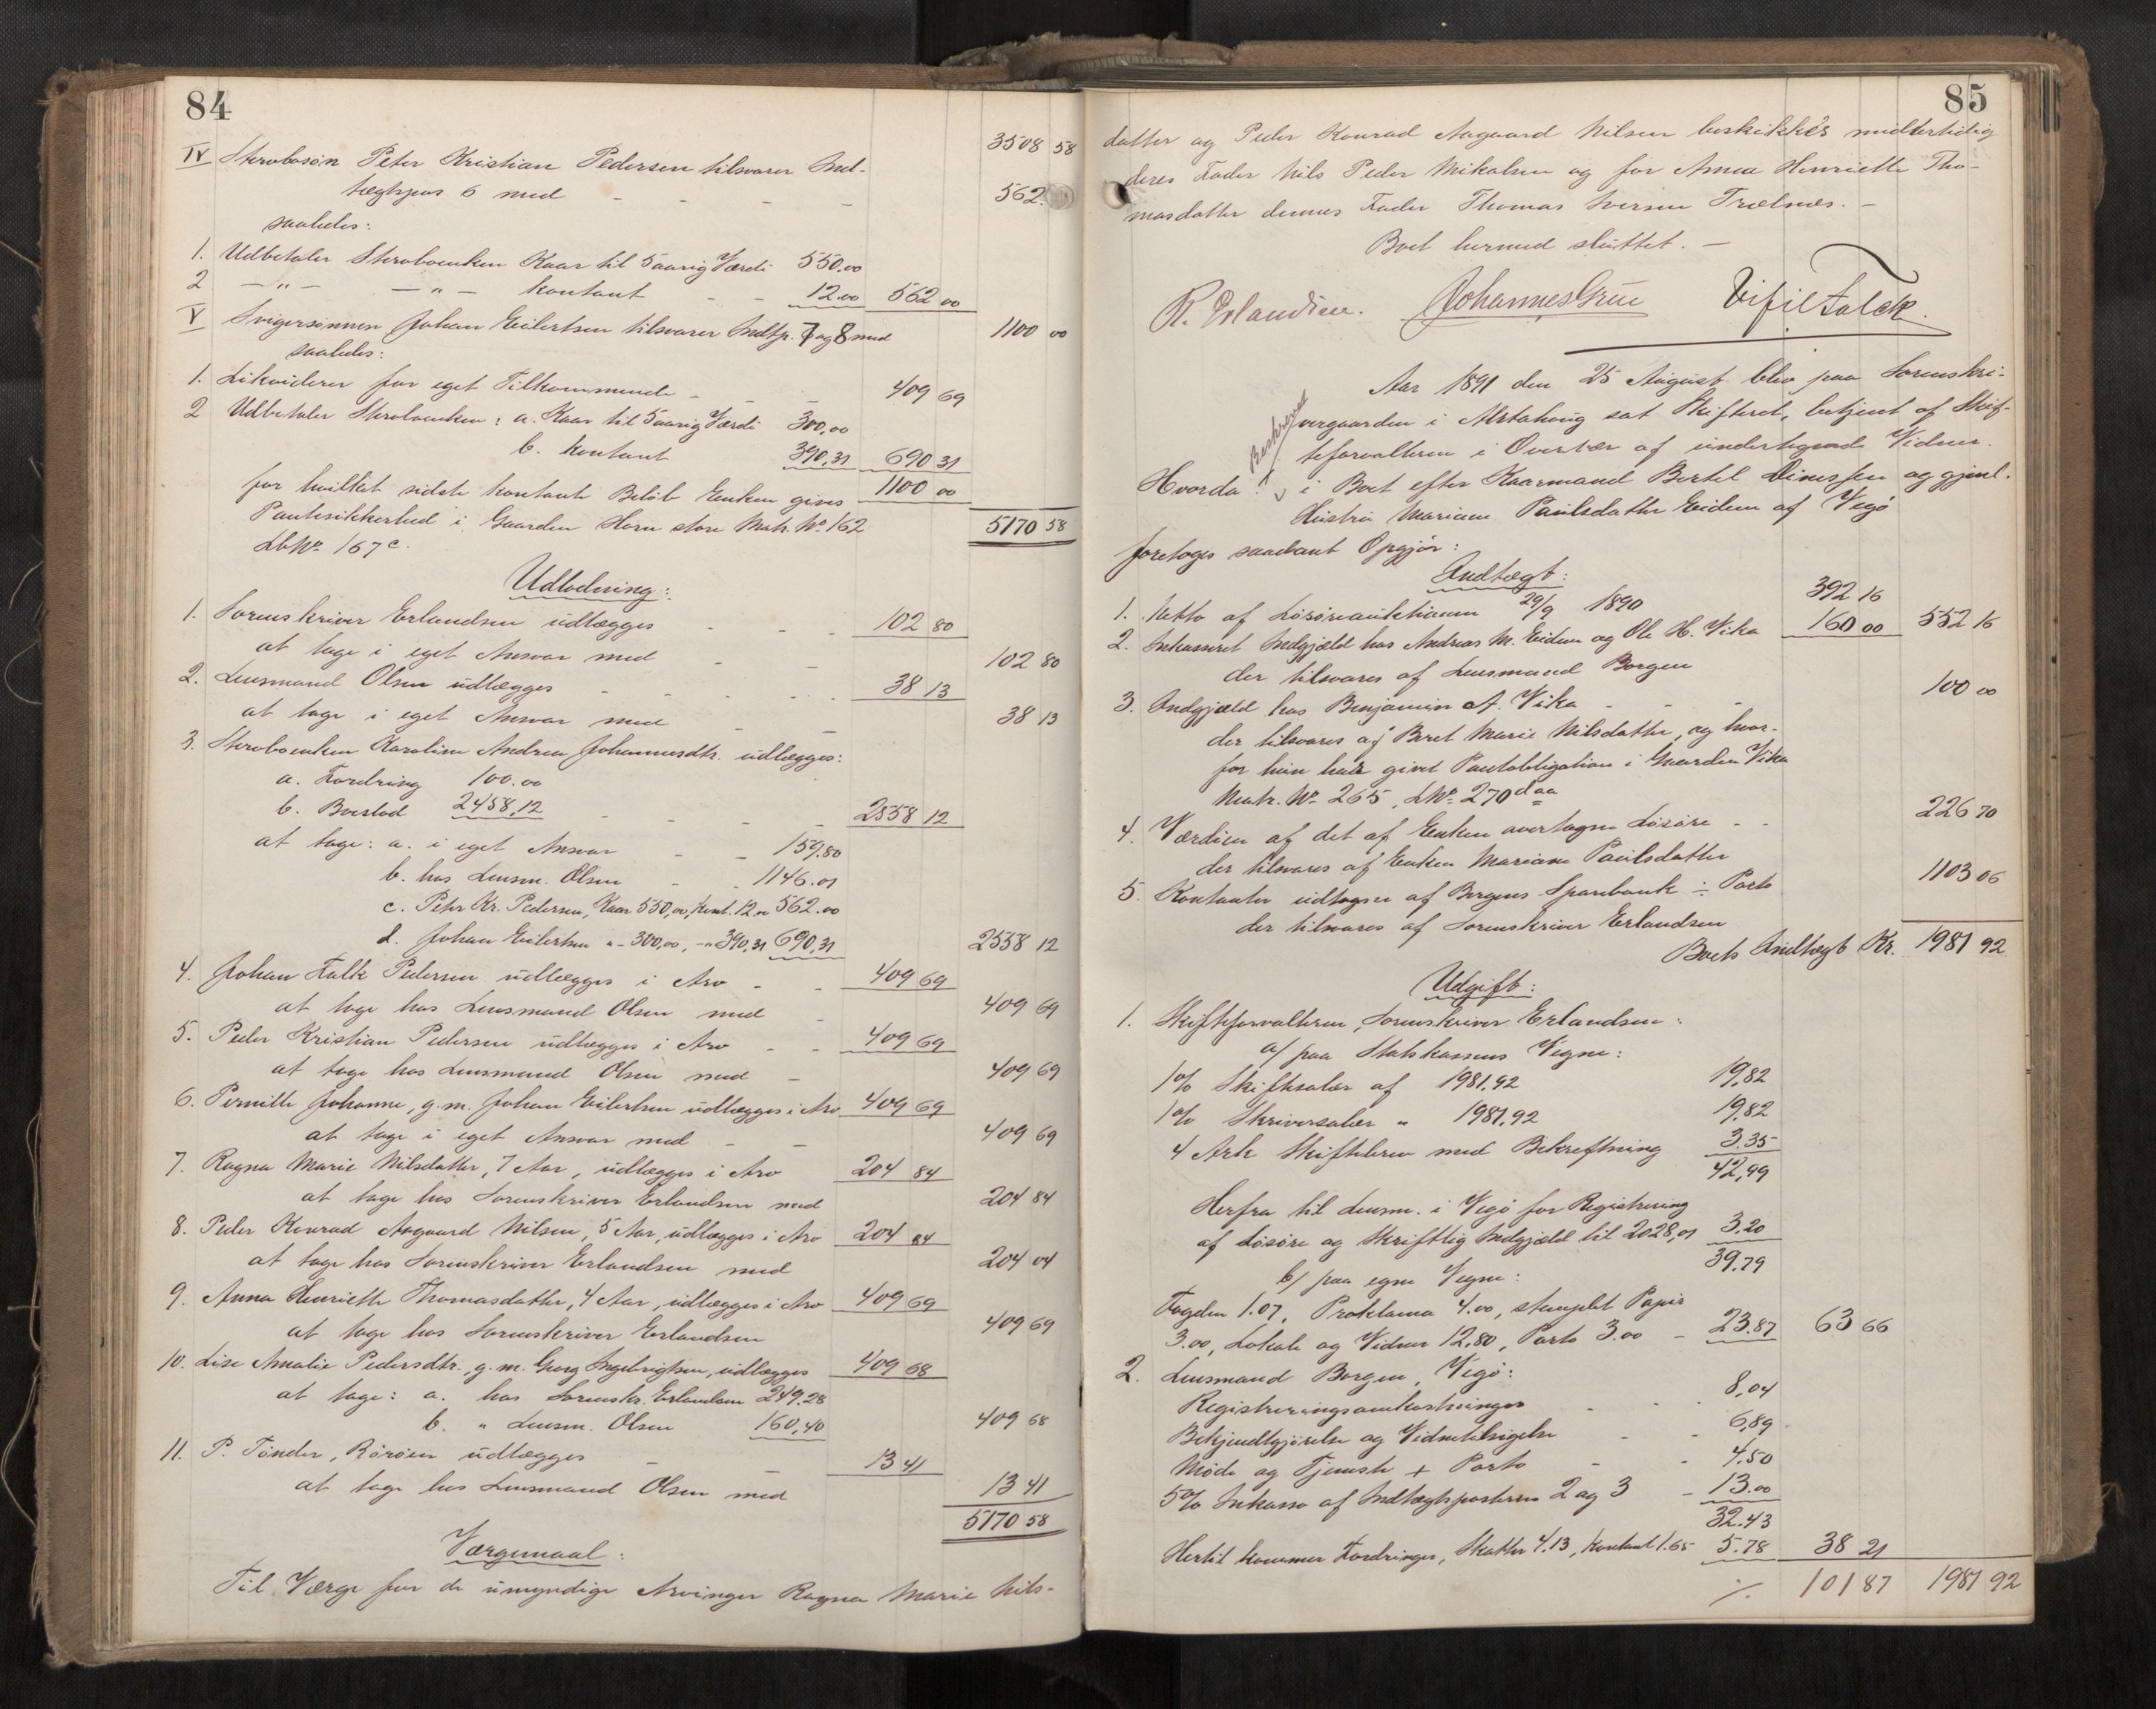 84
3508 58
IV Sterbosøn Peter Kristian Pedersen tilsvarer Ind-
tægtspos 6 med - - - - 562.
saaledes:
1. Udbetaler Sterboenken Kaar til 5aarig Værdi 550.00
2 -"- -"- kontant - - 12.00 562 00
V Svigersønnen Johan Eilertsen tilsvarer Indtp. 7 og 8 med 1100 00
saaledes:
1. Likviderer for eget Tilkommende - - - 409 69
2 Udbetaler Sterboenken: a. Kaar til 5aarig Værdi 300,00
b. kontant 390,31 690 31
for hvilket sidste kontante Beløb Enken gives 1100 00
Pantesikkerhed i Gaarden Horn store Matr. No 162
LbNo 167c.
5170 58
Udlodning:
1. Sorenskriver Erlandsen udlægges - - - 102 80
at tage i eget Ansvar med - - 102 80
2. Lensmand Olsen udlægges - - - - 38 13
at tage i eget Ansvar med - - 38 13
3. Sterboenken Karoline Andrea Johannesdtr. udlægges:
a. Fordring 100.00
b. Boeslod 2458,12 - - - - 2558 12
at tage: a. i eget Ansvar - - 159,80
b. hos Lensm. Olsen - - 1146.01
c. Peter Kr. Pedersen, Kaar 550,00, kont. 12.00 562.00
d. Johan Eilertsen "- 300,00, -" 390,31 690,31 2558 12
4. Johan Falk Pedersen udlægges i Arv - - 409 69
at tage hos Lensmand Olsen med - 409 69
5. Peder Kristian Pedersen udlægges i Arv - - 409 69
at tage hos Lensmand Olsen med - 409 69
6. Pernille Johanne, g. m. Johan Eilertsen udlægges i Arv 409 69
at tage i eget Ansvar med - - 409 69
7. Ragna Marie Nilsdatter, 7 Aar, udlægges i Arv 204 84
at tage hos Sorenskriver Erlandsen med 204 84
8. Peder Konrad Aagaard Nilsen, 5 Aar, udlægges i Arv 204 84
at tage hos Sorenskriver Erlandsen med 204 84
9. Anna Henriette Thomasdatter, 4 Aar, udlægges i Arv 409 69
at tage hos Sorenskriver Erlandsen 409 69
10. Lise Amalie Pedersdtr., g. m. Georg Ingebrigtsen, udlægges 409 68
at tage: a. hos Sorenskr. Erlandsen 249,28
b. " Lensm. Olsen 160,40 409 68
11. P. Tønder, Rørøen udlægges - - 13 41
at tage hos Lensmand Olsen med 13 41
5170 58
Værgemaal:
Til Værge for de umyndige Arvinger Ragna Marie Nils-
85
datter og Peder Konrad Aagaard Nilsen beskikkes midlertidig
deres Fader Nils Peder Mikalsen og for Anna Henriette Tho-
masdatter dennes Fader Thomas Iversen Trælnes. -
Boet hermed sluttet. -
R. Erlandsen. Johannes Grue Vifil Falck.
Aar 1891 den 25 August blev paa Sorenskri-
vergaarden i Alstahaug sat Skifteret, betjent af Skif-
teforvalteren i Overvær af undertegnede Vidner.
Beskreve
Hvorda: i Boet efter Kaarmand Bertel Dinessen og gjenl.
Hustru Mariane Paulsdatter Eidem af Vegø
foretoges saadant Opgjør:
Indtægt:
1. Netto af Løsøreauktionen 29/9 1890 392 16
2. Inkasseret Indgjæld hos Andreas M. Eidem og Ole H. Vika 160 00 552 16
der tilsvares af Lensmand Borgen
3. Indgjæld hos Benjamin A. Vika - - - 100 00
der tilsvares af Beret Marie Nilsdatter, og hvor-
for hun har givet Pantobligation i Gaarden Vika
Matr. No 265, LNo 270 daa
4. Værdien af det af Enken overtagne Løsøre - - 226 70
der tilsvares af Enken Mariane Paulsdatter
5. Kontanter udtagne af Bergens Sparebank ÷ Porto 1103 06
der tilsvares af Sorenskriver Erlandsen
Boets Indtægt Kr. 1981 92
Udgift:
1. Skifteforvalteren, Sorenskriver Erlandsen:
a/ paa Statskassens Vegne:
1% Skiftesalær af 1981,92 19,82
1% Skriversalær " 1981,92 19,82
4 Ark Skiftebrev med Bekreftning 3.35
42,99
Herfra til Lensm. i Vegø for Registrering
af Løsøre og skriftlig Indgjæld til 2028,01 3,20
39,79
b/ paa egne Vegne:
Fogden 1.07, Proklama 4.00, stemplet Papir
3.00, Lokale og Vidner 12,80, Porto 3.00 - 23.87 63 66
2. Lensmand Borgen, Vegø:
Registreringsomkostninger - - - 8,04
Bekjendtgjørelse og Vidnetilsigelse - - 6,89
Møde og Tjeneste + Porto - - 4.50
5% Inkasso af Indtægtsposterne 2 og 3 - 13.00
32.43
Hertil kommer Fordringer, Skatter 4.13, kontant 1.65 5.78 38 21
./. 101 87 1981 92